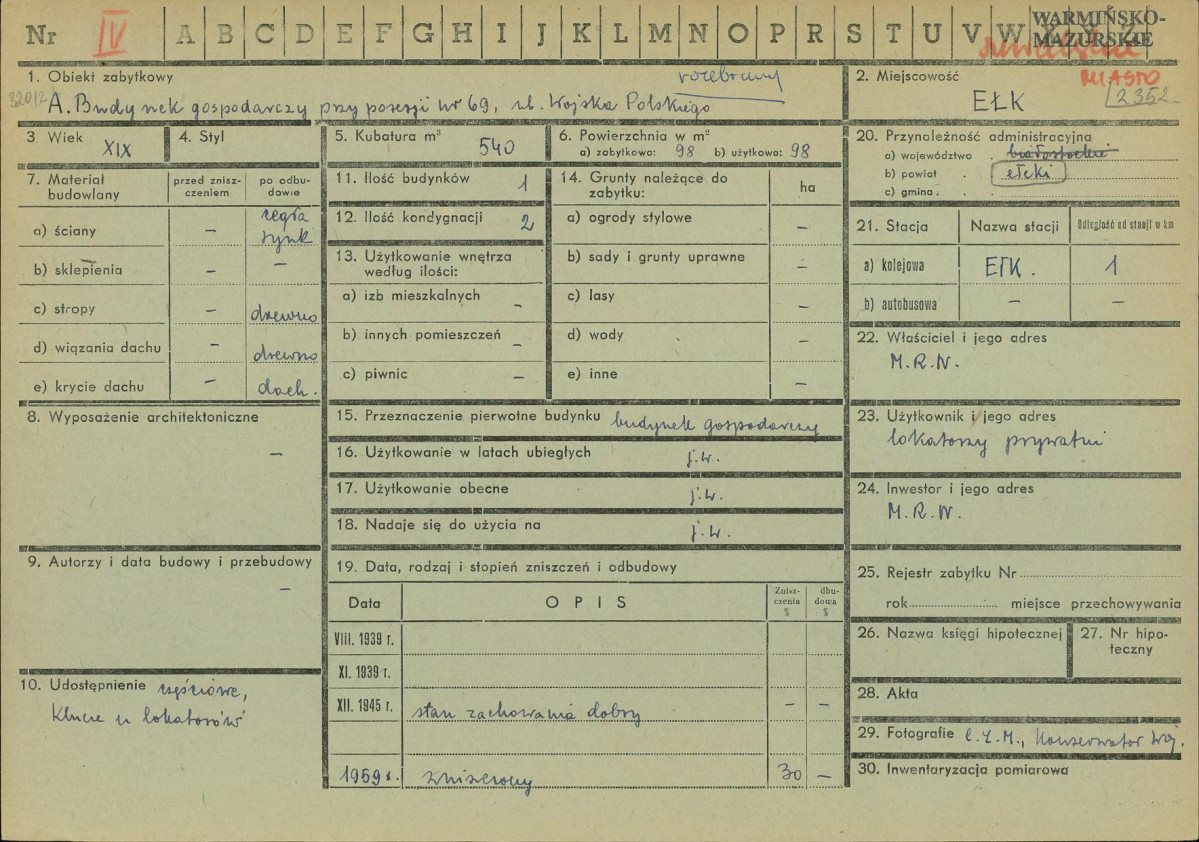 Nr IV A B C D E F G H I J K L M N O P R S T U V W X Y Z
WARMIŃSKO-
MAZURSKIE
MIASTO
1. Obiekt zabytkowy
rozebrany
A. Budynek gospodarczy przy posesji nr 69, ul. Wojska Polskiego
2. Miejscowość
EŁK
2352
3. Wiek
XIX
4. Styl
5. Kubatura m³
540
6. Powierzchnia w m²
a) zabytkowa: 98 b) użytkowa: 98
7. Materiał budowlany
przed znisz-
czeniem
po odbu-
dowie
a) ściany – cegła
tynk
b) sklepienia – –
c) stropy – drewno
d) wiązania dachu – drewno
e) krycie dachu – dach.
8. Wyposażenie architektoniczne
–
9. Autorzy i data budowy i przebudowy
–
10. Udostępnienie częściowe,
klucze u lokatorów
11. Ilość budynków 1
12. Ilość kondygnacji 2
13. Użytkowanie wnętrza
według ilości:
a) izb mieszkalnych –
b) innych pomieszczeń –
c) piwnic –
14. Grunty należące do
zabytku:
ha
a) ogrody stylowe –
b) sady i grunty uprawne –
c) lasy –
d) wody –
e) inne –
15. Przeznaczenie pierwotne budynku budynek gospodarczy
16. Użytkowanie w latach ubiegłych j.w.
17. Użytkowanie obecne j.w.
18. Nadaje się do użycia na j.w.
19. Data, rodzaj i stopień zniszczeń i odbudowy
Data OPIS
Znisz-
czenia
%
dbu-
dowa
%
VIII. 1939 r.
XI. 1939 r.
XII. 1945 r. stan zachowania dobry – –
1959 r. zniszczony 30 –
20. Przynależność administracyjna
a) województwo białostockie
b) powiat ełcki
c) gmina
21. Stacja Nazwa stacji Odległość od stacji w km
a) kolejowa EŁK. 1
b) autobusowa – –
22. Właściciel i jego adres
M.R.N.
23. Użytkownik i jego adres
lokatorzy prywatni
24. Inwestor i jego adres
M.R.N.
25. Rejestr zabytku Nr
rok miejsce przechowywania
26. Nazwa księgi hipotecznej
27. Nr hipo-
teczny
28. Akta
29. Fotografie Konserwator Woj.
30. Inwentaryzacja pomiarowa